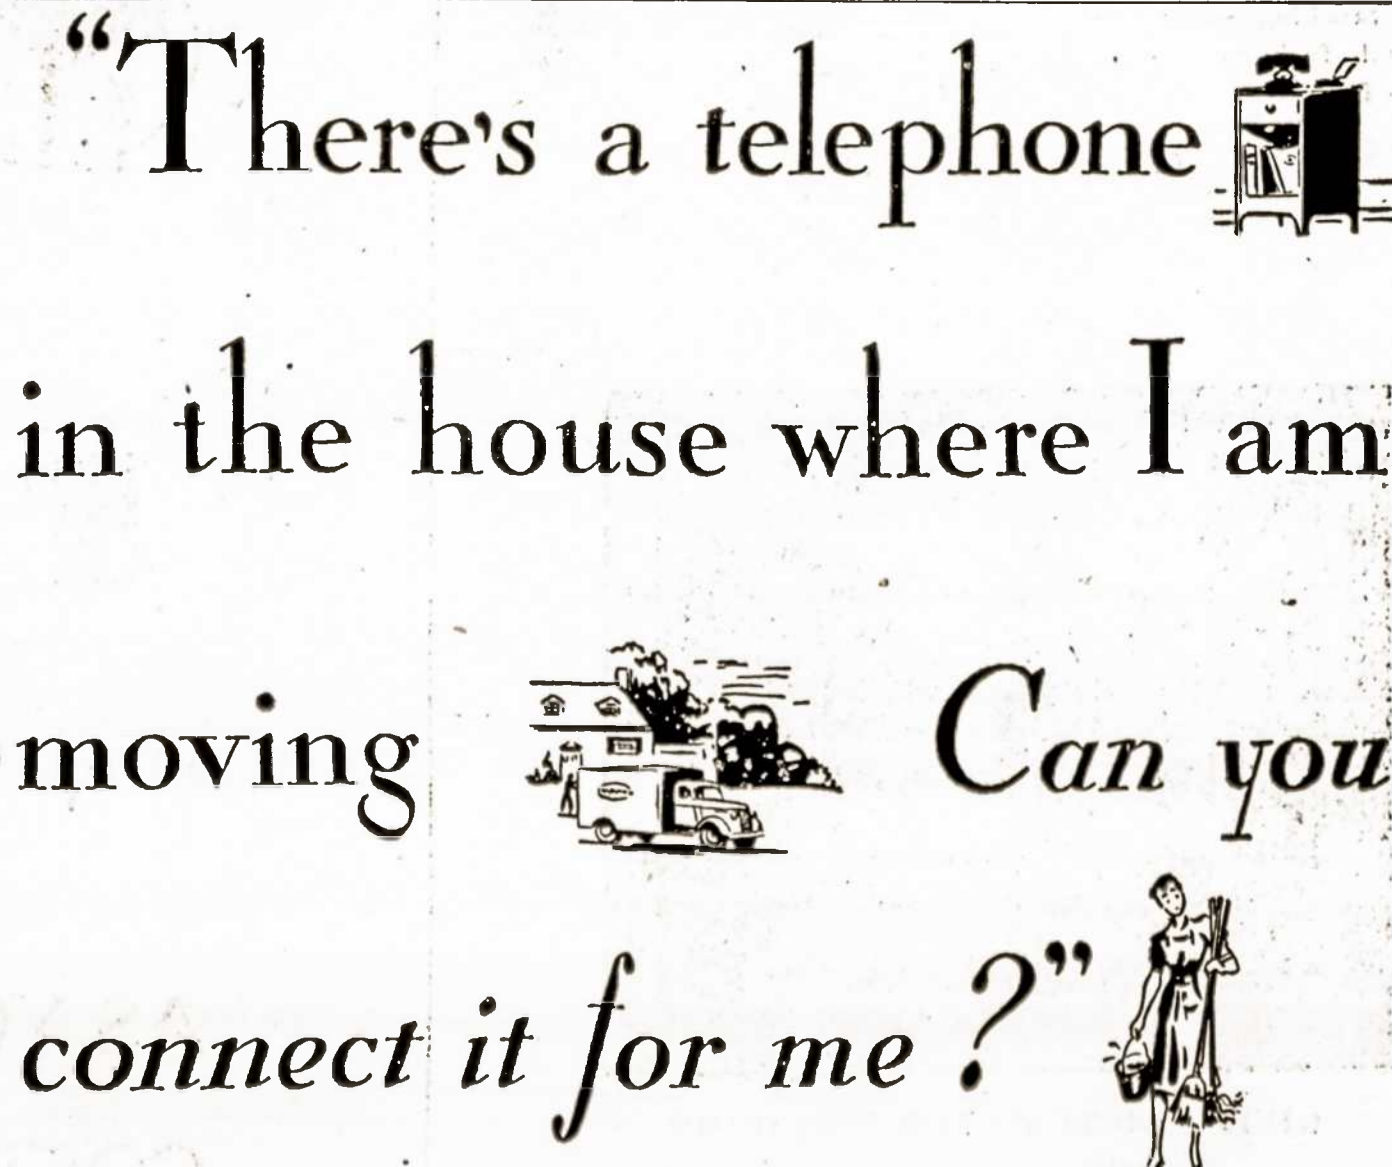 “There's a telephone
in the house where I am
moving Can you
connect it for me?”